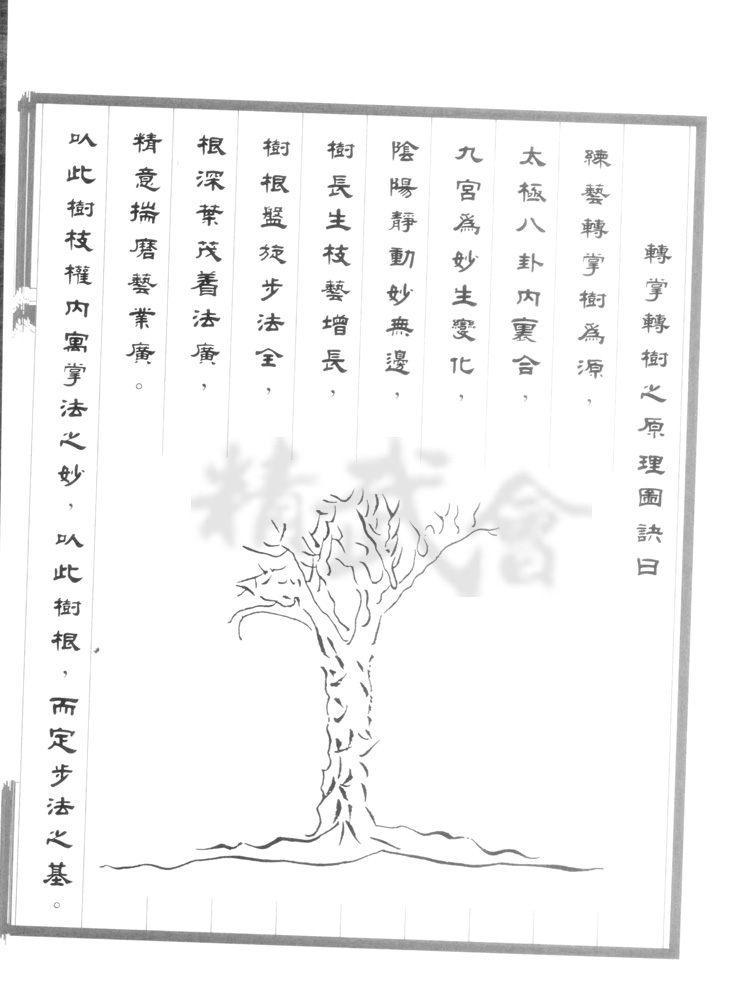 轉掌轉樹之原理圖訣曰
練藝轉掌樹為源，
太極八卦內裏合，
九宮為妙生變化，
陰陽靜動妙無邊，
樹長生枝藝增長，
樹根盤旋步法全，
根深葉茂着法廣，
精意揣磨藝業廣。
以此樹枝權內寓掌法之妙，以此樹根，而定步法之基。
精武會